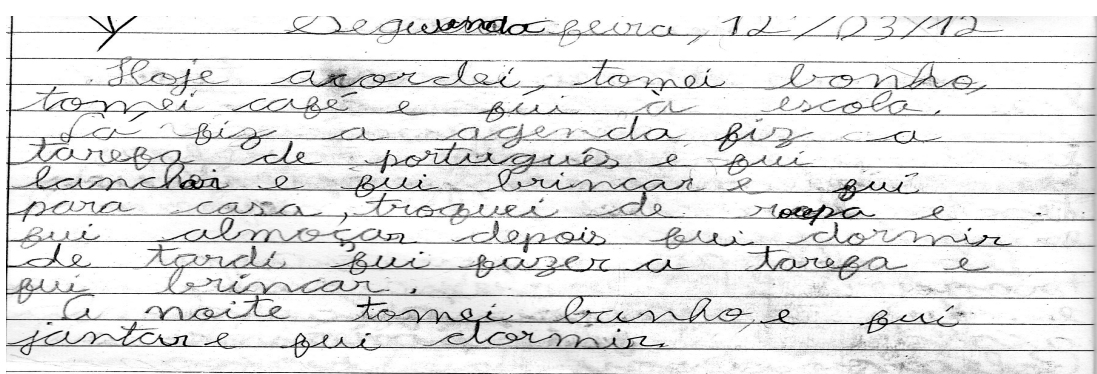 Segunda feira, 12/03/12
Hoje acordei, tomei bonho,
tomei café e fui à escola.
Lá fiz a agenda fiz a
tarefa de português e fui
lanchar e fui brincar e fui
para casa, troquei de roupa e
fui almoçar depois fui dormir
de tardi fui fazer a tarefa e
fui brincar.
A noite tomei banho, e fui
jantar e fui dormir.